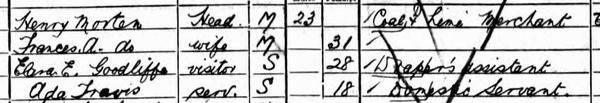 Henry Morten Head. M 23 Coal & Lime Merchant
Frances. A. do wife M 31
Clara E. Goodliffe visitor S 28 Draper's assistant
Ada Travis serv. S 18 Domestic Servant.